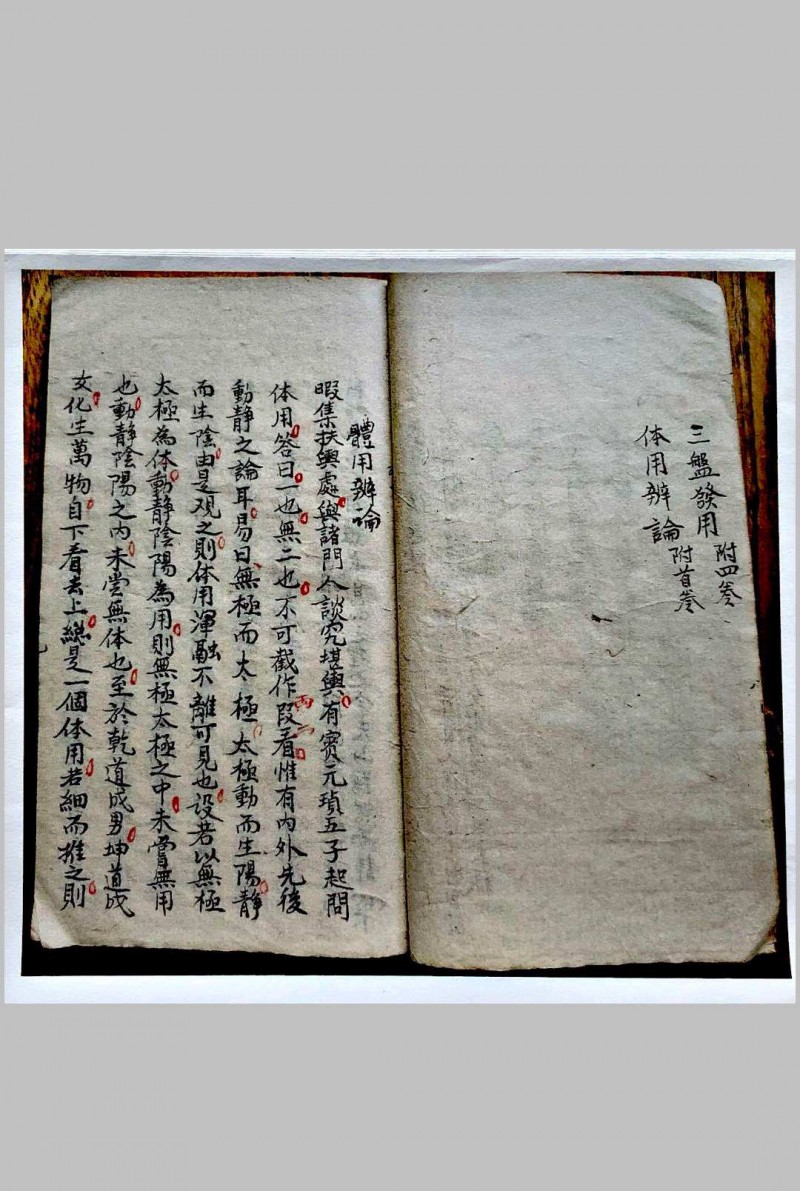 三盤發用附四叅
体用辨論附首叅
體用辨論
暇集扶輿處與諸門人談究堪輿有賓元瑣五子起問
体用答曰一也無二也不可截作兩段看惟有內外先後
動靜之論耳易曰無極而太極太極動而生陽靜
而生陰由是观之則体用渾融不離可見也設若以無極
太極為体動靜陰陽為用則無極太極之中未嘗無用
也動靜陰陽之內未尝無体也至於乾道成男坤道成
女化生萬物自下看去上總是一個体用若細而推之則